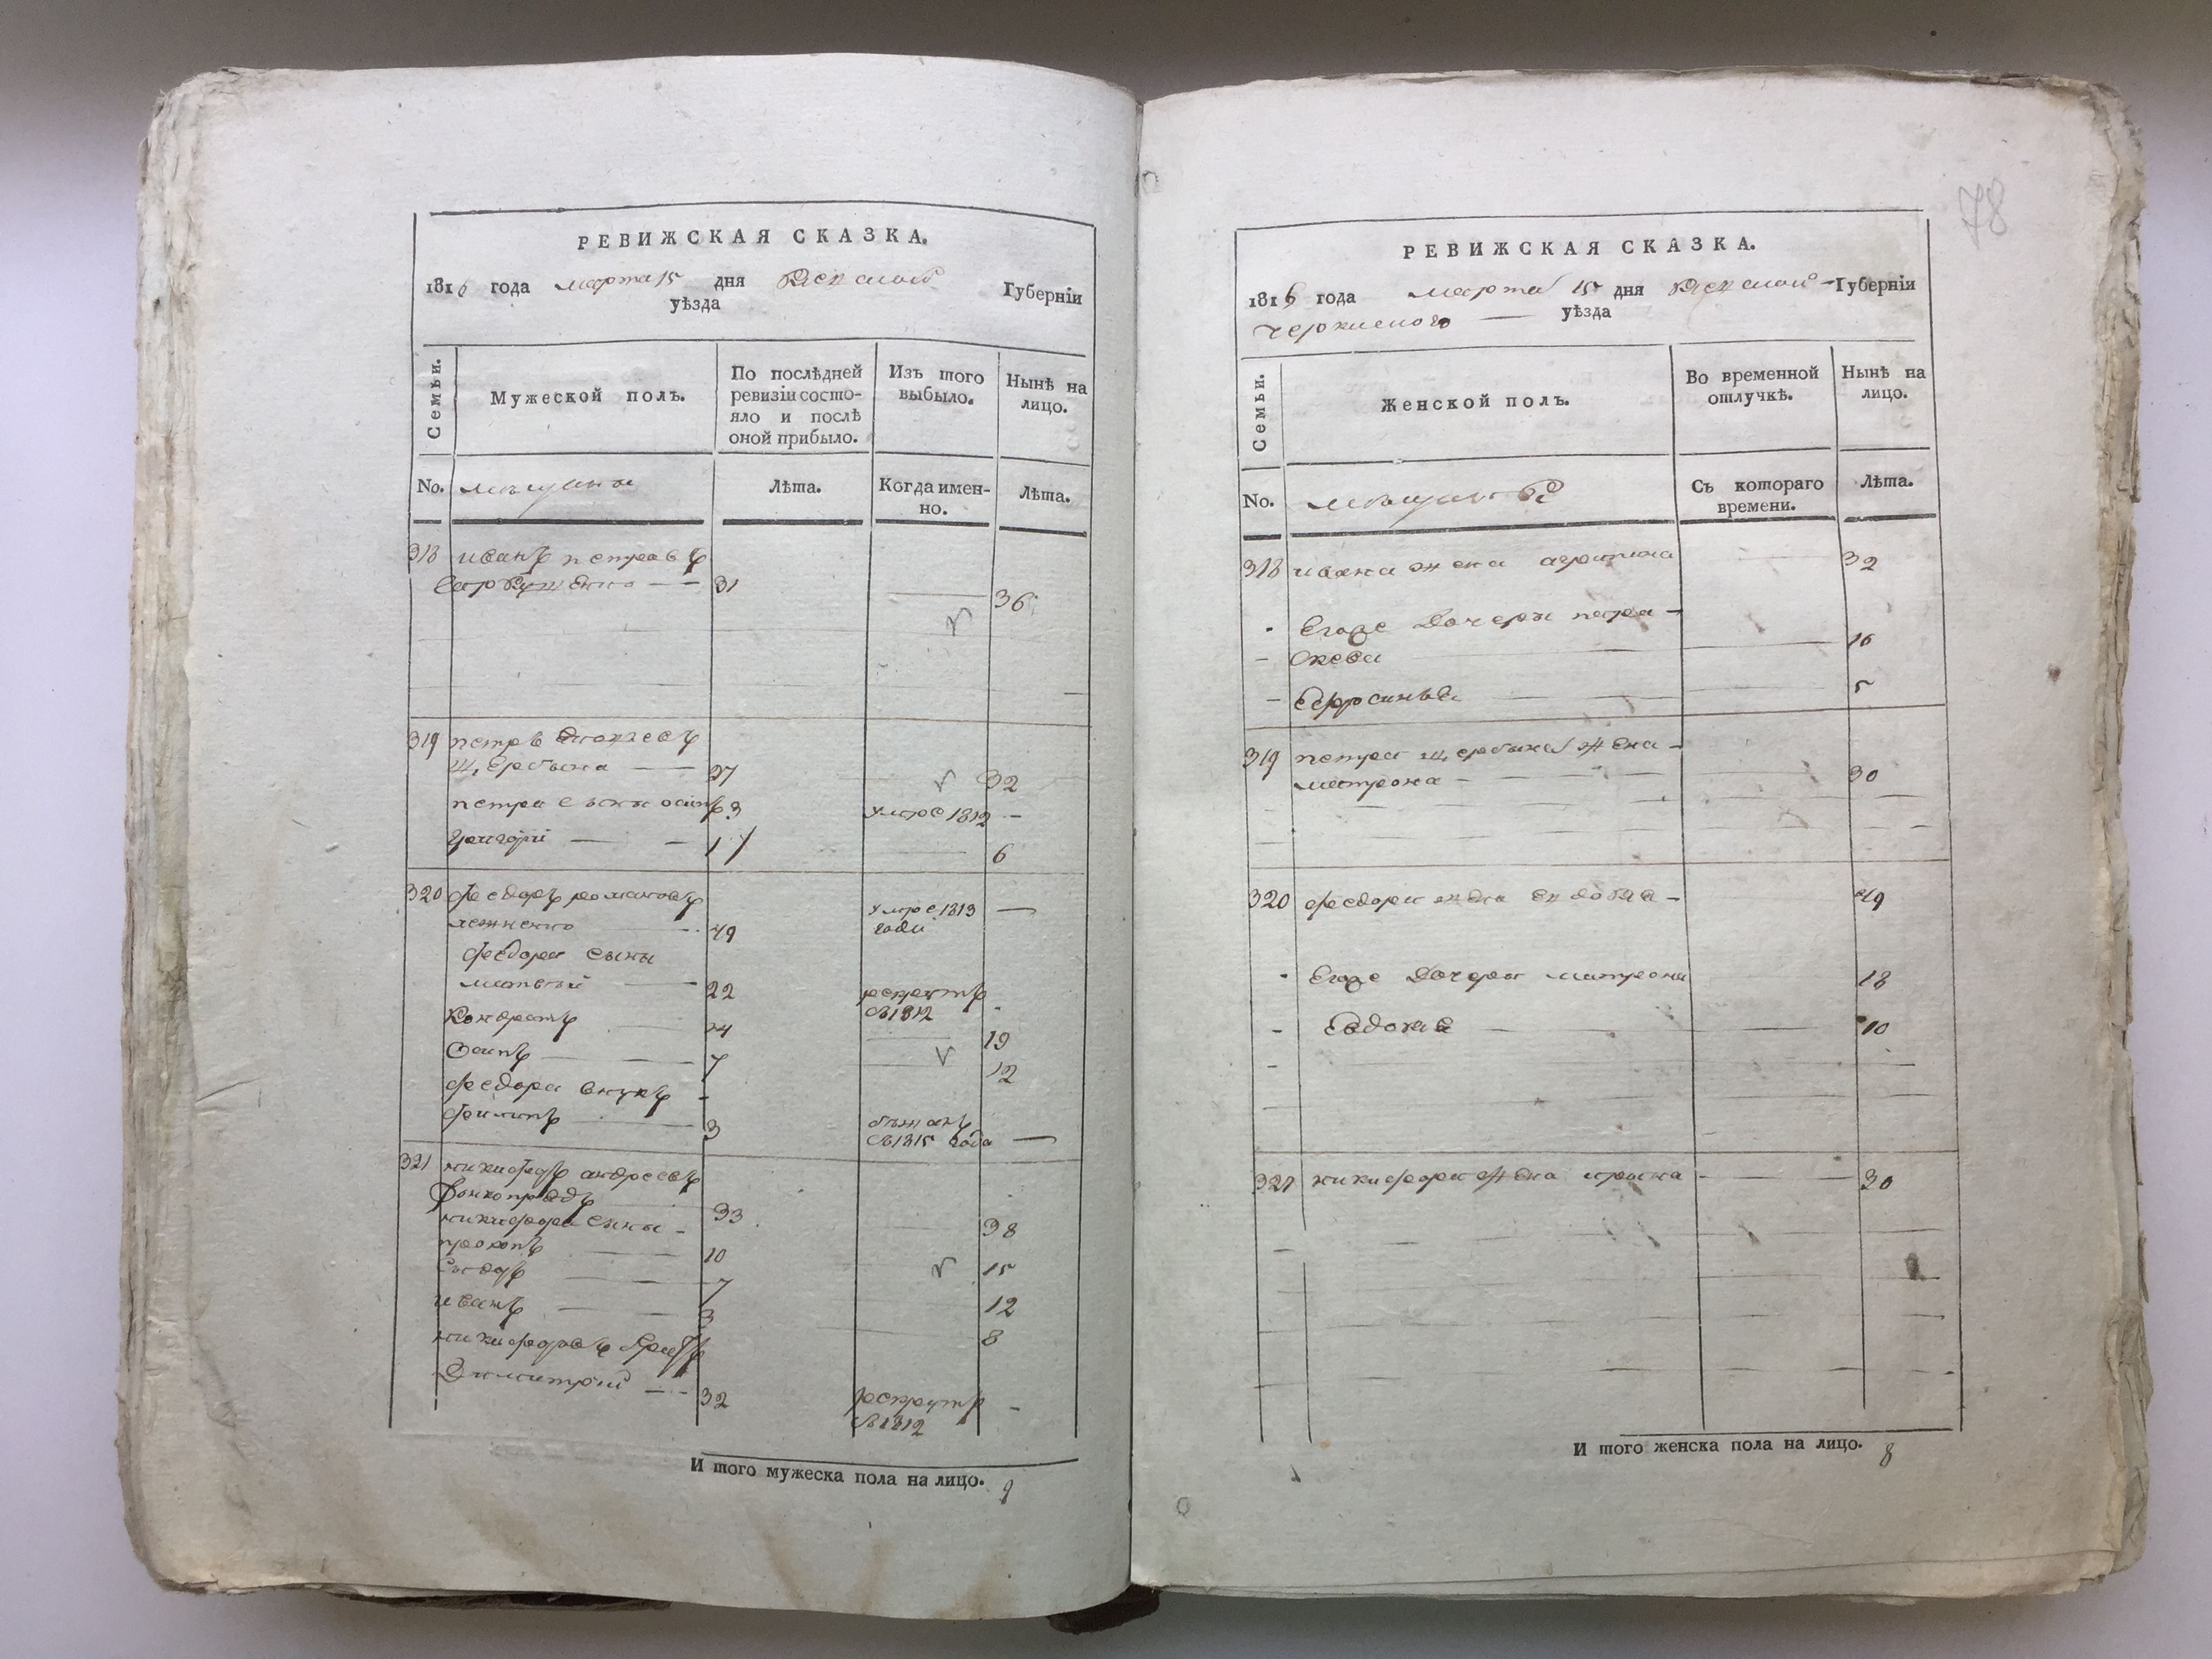 РЕВИЖСКАЯ СКАЗКА.
1816 года марта 15 дня Киевской Губерніи
уѣзда
Семьи.
Мужеской полъ.
По послѣдней ревизіи состо-
яло и послѣ
оной прибыло.
Изъ того
выбыло.
Нынѣ на
лицо.
No. мещане
Лѣта.
Когда имен-
но.
Лѣта.
318 иванъ петровъ
31
36
319 петръ
Щербына 27 32
петра сыны осипъ 3 умре 1812 -
григорій 1 6
320 федоръ романовъ
умре 1813
года
49
федора сыны
матвей 22 рекрутъ
въ 1812 -
Кондратъ 14 19
Осипъ 7 12
федора внукъ -
филипъ 3 бежалъ
въ 1815 года
321 никифоръ андреевъ
33 38
никифора сыны
прокопъ 10 15
7 12
иванъ 3 8
никифоровъ братъ
Димитрій 32 рекрутъ
въ 1812 -
И того мужеска пола на лицо. 9
78
РЕВИЖСКАЯ СКАЗКА.
1816 года марта 15 дня Киевской Губерніи
Черкаского уѣзда
Семьи.
Женской полъ.
Во временной
отлучкѣ.
Нынѣ на
лицо.
No. мещанки
Съ котораго
времени.
Лѣта.
318 ивана жена агрипина 32
Егоже дочери пара-
скева 16
Ефросинья 5
319 петра щербына жена
матрона 30
320 федора жена 49
Егоже дочери матрона 18
Евдокия 10
321 никифора жена ирына 30
И того женска пола на лицо. 8